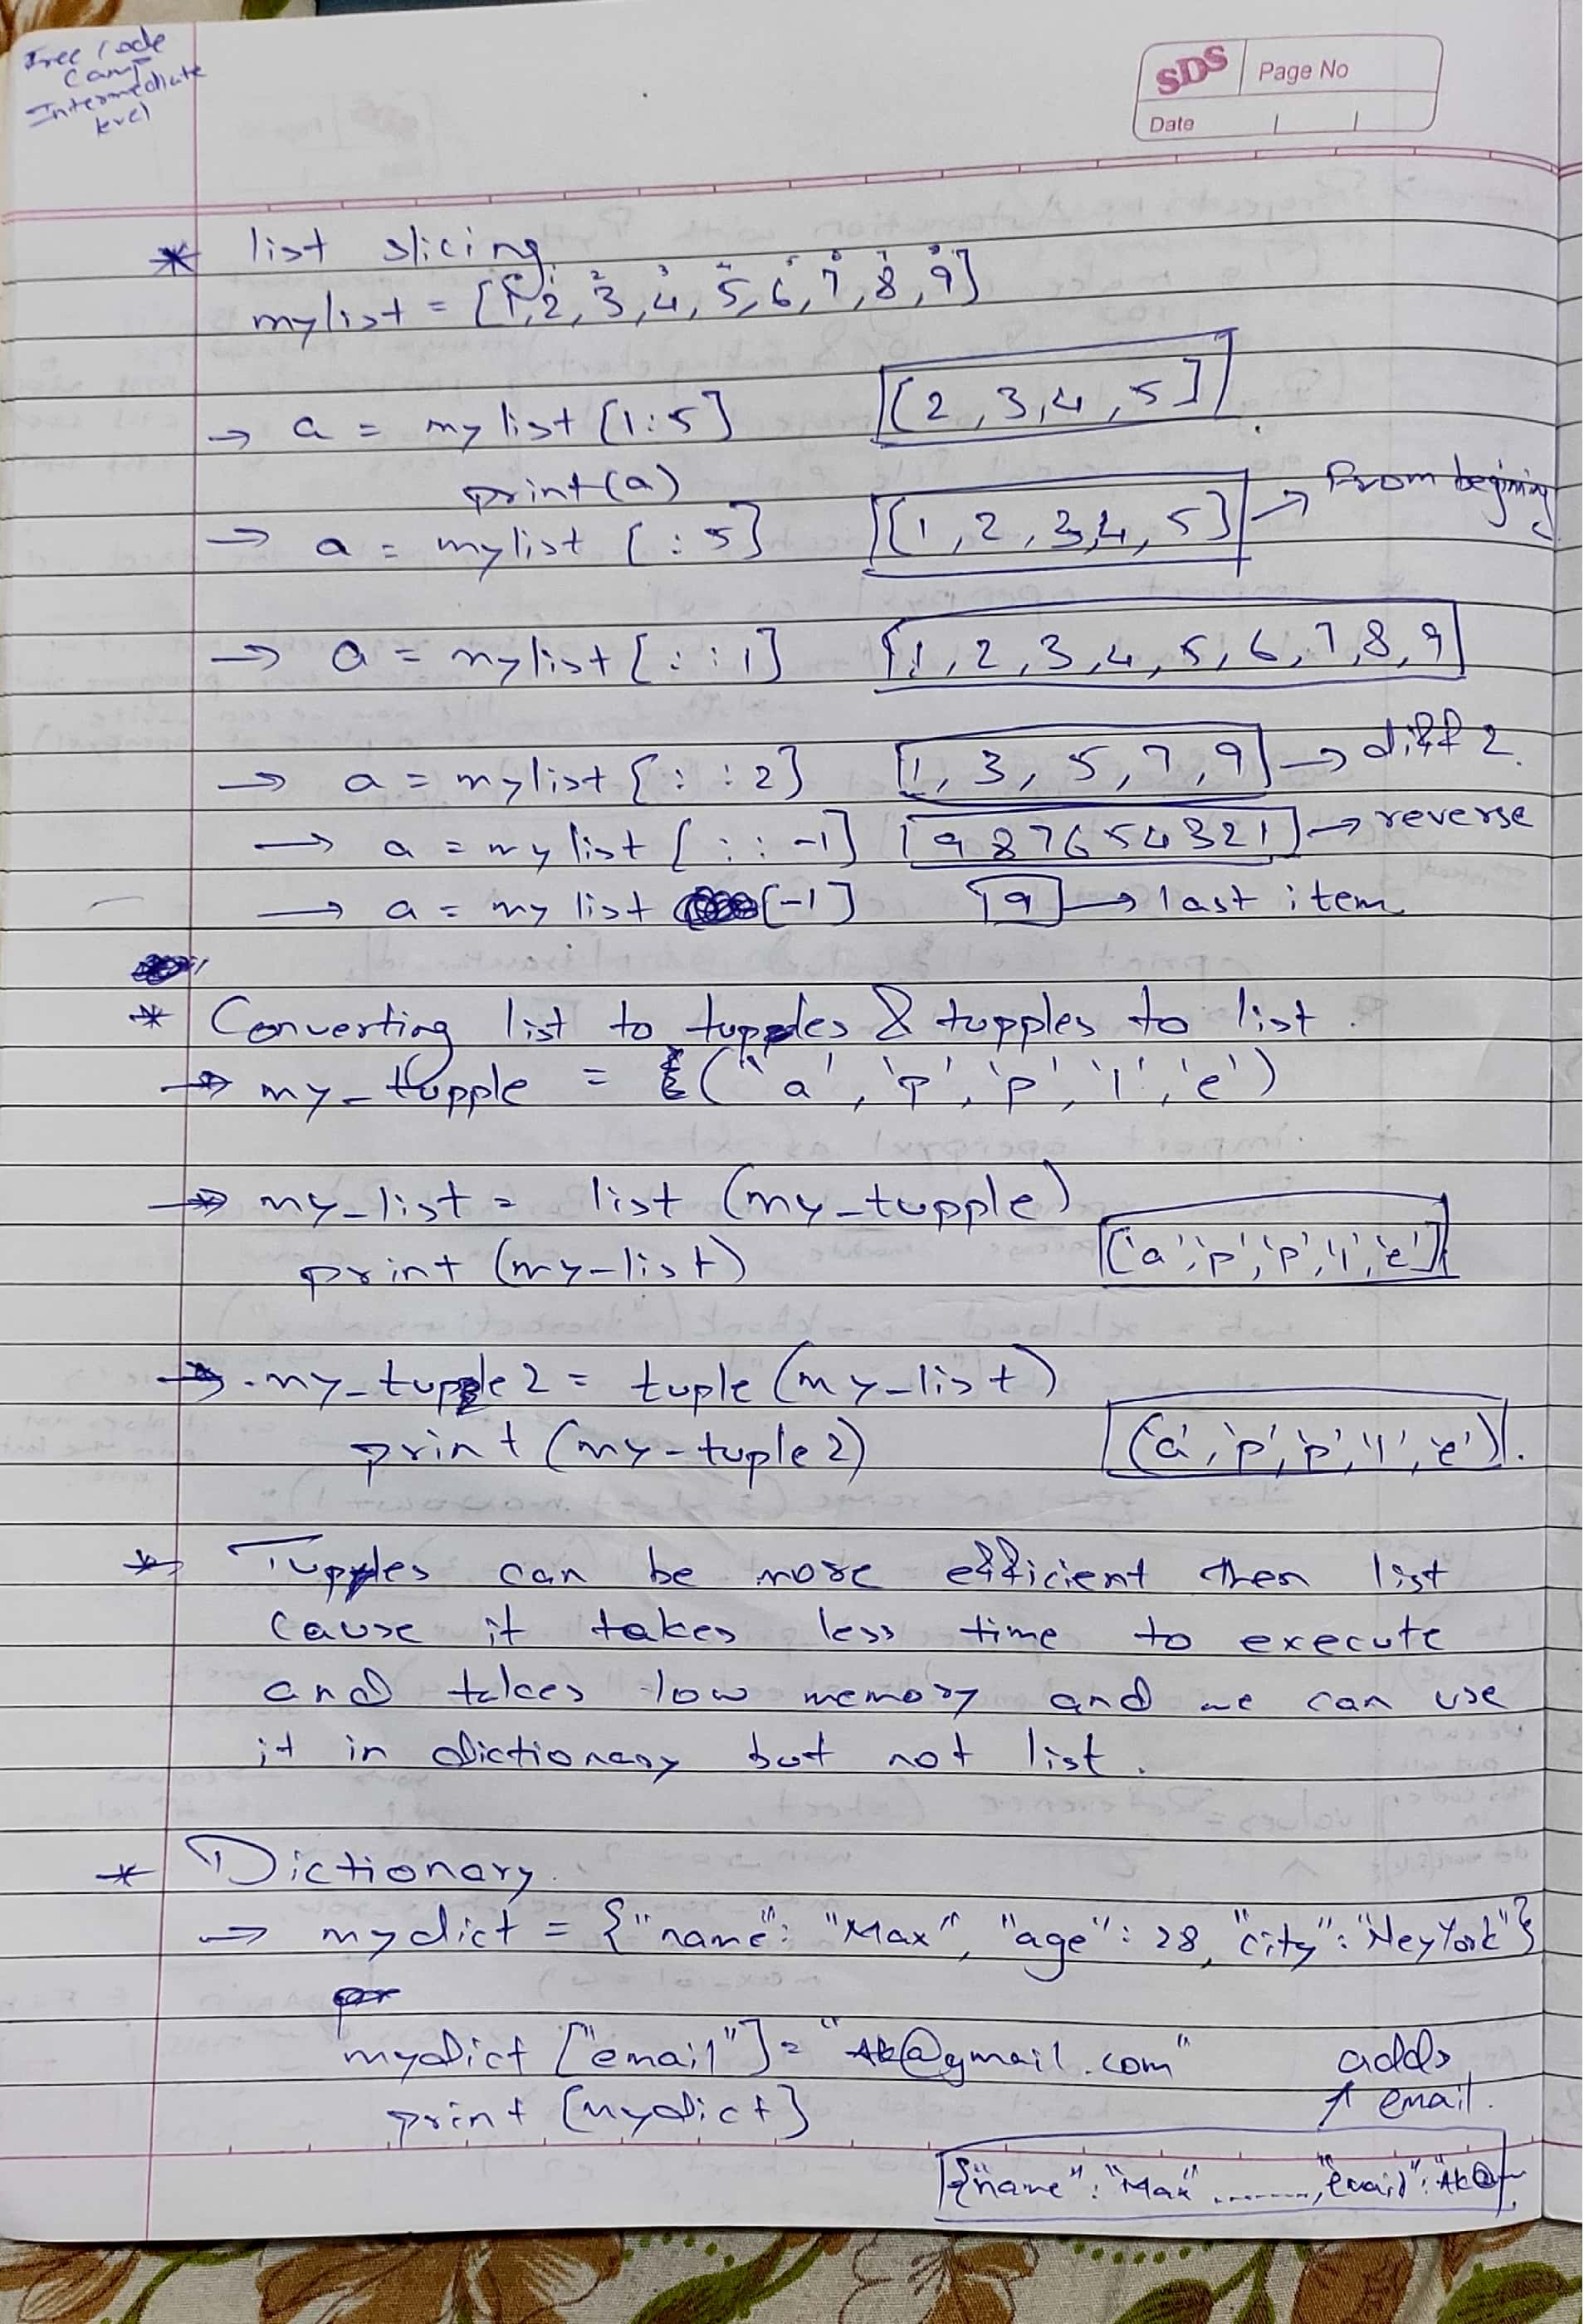 Free Code
Camp
Intermediate
level
SDS Page No
Date
* list slicing
0 1 2 3 4 5 6 7 8
mylist = [1,2,3,4,5,6,7,8,9]
→ a = mylist [1:5] [2,3,4,5]
print(a)
→ a = mylist [:5] [1,2,3,4,5] → From begining
→ a = mylist [::1] [1,2,3,4,5,6,7,8,9]
→ a = mylist [::2] [1,3,5,7,9] → diff 2.
→ a = mylist [::-1] [987654321] → reverse
→ a = mylist [-1] 9 → last item
* Converting list to tupples & tupples to list.
→ my_tupple = ('a','p','p','l','e')
→ my_list = list (my_tupple)
print (my-list) ['a','p','p','l','e']
→ my_tuple2 = tuple (my_list)
print (my-tuple2) ('a','p','p','l','e').
* Tupples can be more efficient then list
cause it takes less time to execute
and takes low memory and we can use
it in dictionary but not list.
* Dictionary.
→ mydict = {"name": "Max", "age": 28, "city": "NeyYork"}
mydict ["email"] = "Ak@gmail.com" adds
print {mydict} ↑ email.
{"name": "Max" ........., "email": "Ak@